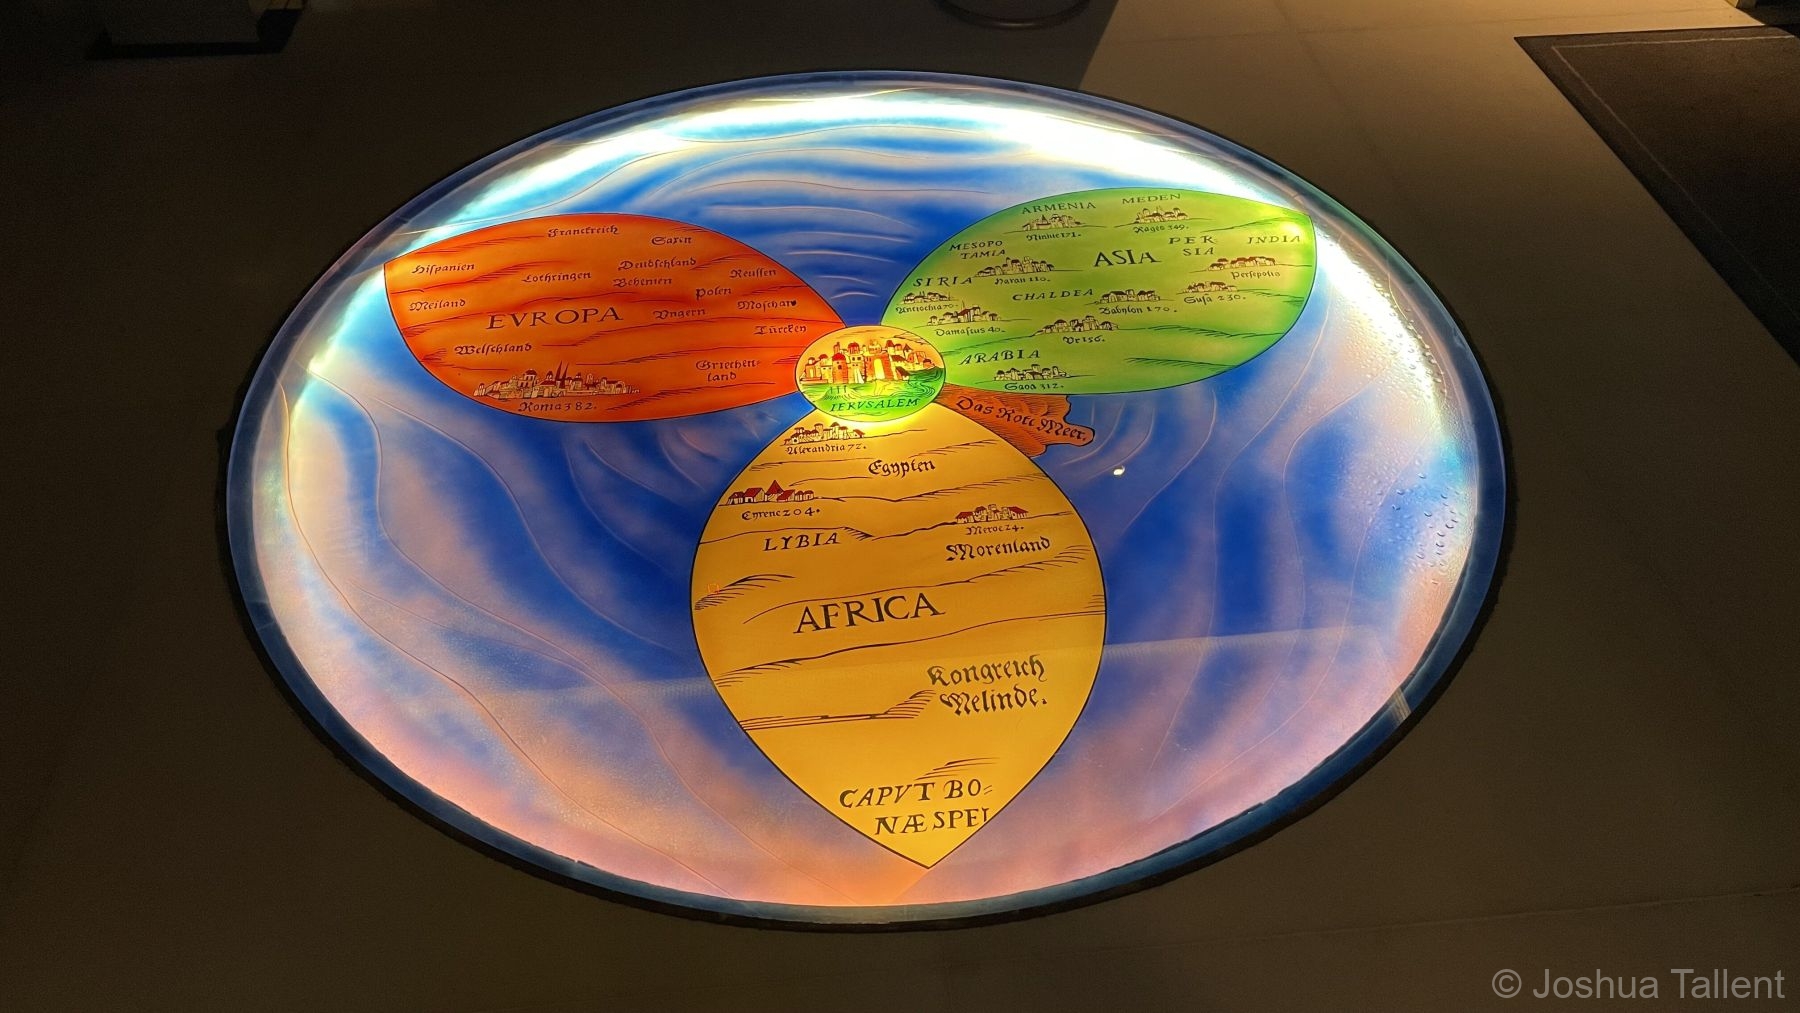 Franckreich
Saxen
Hispanien
Lothringen
Deudschland
Behemen
Reussen
Polen
Meiland
Moschaw
EVROPA
Vngern
Türcken
Welschland
Griechen=
land
Roma 382.
ARMENIA
MEDEN
Niniue 171.
Rages 349.
MESOPO
TAMIA
ASIA
PER
SIA
INDIA
SIRIA
Haran 110.
Persepolis
CHALDEA
Antiochia 70.
Babylon 170.
Susa 230.
Damascus 40.
Vr 156.
ARABIA
Saba 312.
IERVSALEM
Das Rote Meer.
Alexandria 72.
Egypten
Cyrene 204.
Meroe 24.
LYBIA
Morenland
AFRICA
Kongreich
Melinde.
CAPVT BO=
NÆ SPEI
© Joshua Tallent